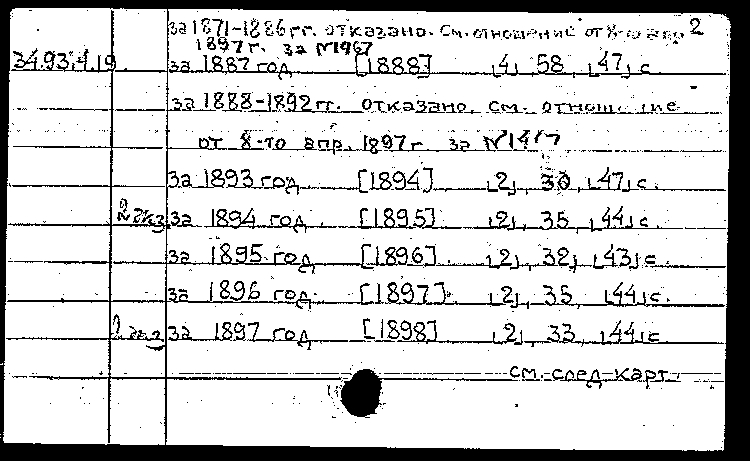 2
за 1871-1886 гг. отказано. см. отношение от 8-го апр
1897 г. за №1467
34.93.4.19 за 1887 год [1888] |4|, 58, |47| с
за 1888-1892 гг. отказано, см. отношение
от 8-го апр. 1897 г за №1467
за 1893 год [1894] |2|, 30, |47| с.
2 экз за 1894 год. [1895] |2|, 35, |44| с.
за 1895 год [1896]. |2|, 32, |43| с
за 1896 год. [1897]. |2|, 35, |44| с.
2 экз за 1897 год [1898] |2|, 33, |44| с
см. след. карт.